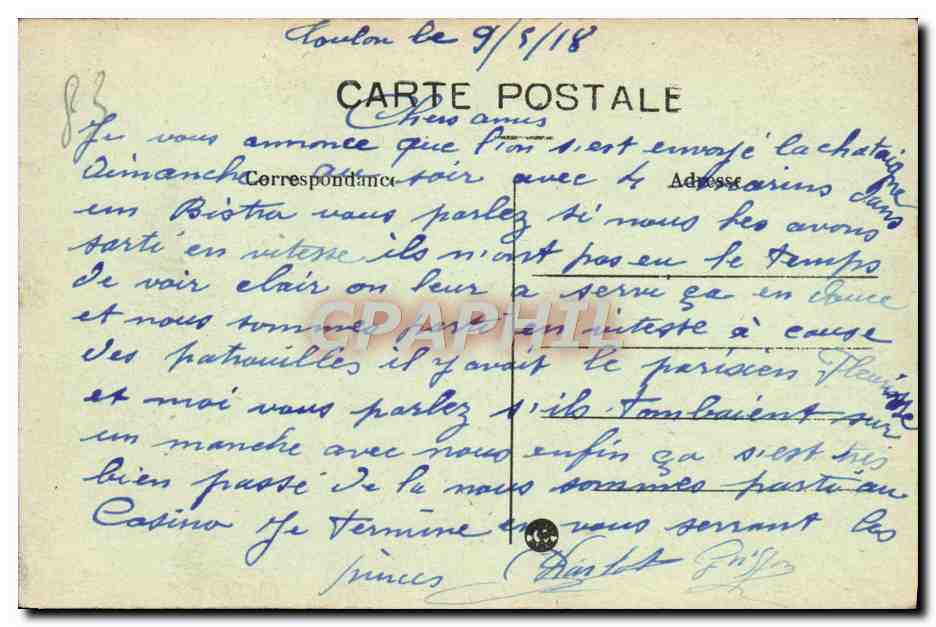 Toulon le 9/5/18
83
CARTE POSTALE
Chers amis
Je vous annonce que l'on s'est envoyé la chataigne
dimanche au soir avec 4 marins dans
Correspondance
Adresse
un Bistro vous parlez si nous les avons
sorti en vitesse ils n'ont pas eu le temps
de voir clair on leur a servi ça en douce
CPAPHIL
et nous sommes parti en vitesse à cause
des patrouilles il y avait le parisien
et moi vous parlez s'ils tombaient sur
un manche avec nous enfin ça s'est très
bien passé de la nous sommes parti au
Casino Je termine en vous serrant les
pinces Charlot